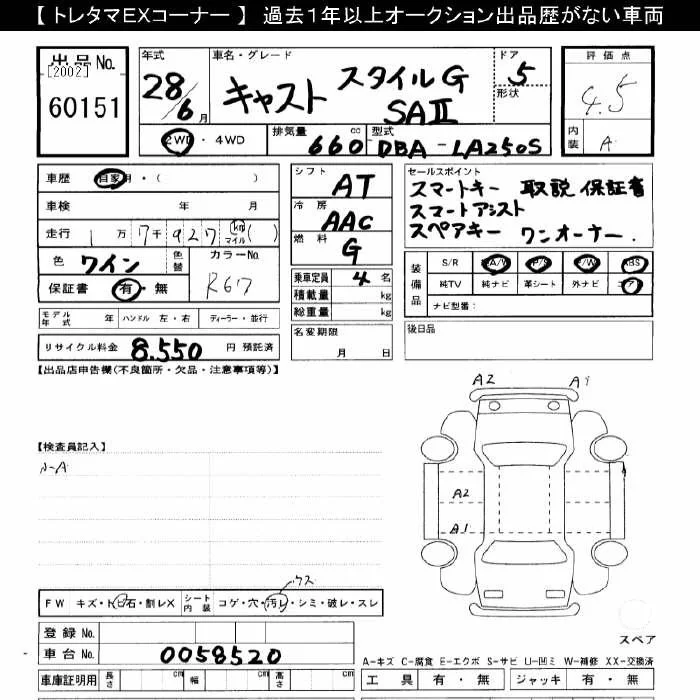 【 トレタマEXコーナー 】 過去１年以上オークション出品歴がない車両
出品 No.
[2002]
60151
年式
28/6月
車名・グレード
キャスト スタイルG
SAⅡ
ドア
5
形状
評価点
4.5
内装 A
2WD ・ 4WD
排気量 660 cc
型式 DBA - LA250S
車歴 自家用・( )
車検 年 月
走行 1万 7千 927 km マイル ( )
色 ワイン 色替
カラーNo. R67
保証書 有・無
モデル年式 年 ハンドル 左・右 ディーラー・並行
リサイクル料金 8.550 円 預託済
シフト AT
冷房 AAC
燃料 G
乗車定員 4 名
積載量 kg
総重量 kg
名変期限 月 日
セールスポイント
スマートキー 取説 保証書
スマートアシスト
スペアキー ワンオーナー.
装備品
S/R A/W P/S P/W ABS
純TV 純ナビ 革シート 外ナビ エアB
ナビ型番：
後日品
【出品店申告欄(不良箇所・欠品・注意事項等)】
A2
A1
A2
A1
【検査員記入】
ウス
FW キズ・トビ石・割レX シート内装 コゲ・穴・汚レ・シミ・破レ・スレ
登録 No.
車台 No. 0058520
車庫証明用 長さ cm 幅 cm 高さ cm
スペア
A-キズ C-腐食 E-エクボ S-サビ U-凹ミ W-補修 XX-交換済
工具 有・無 ジャッキ 有・無